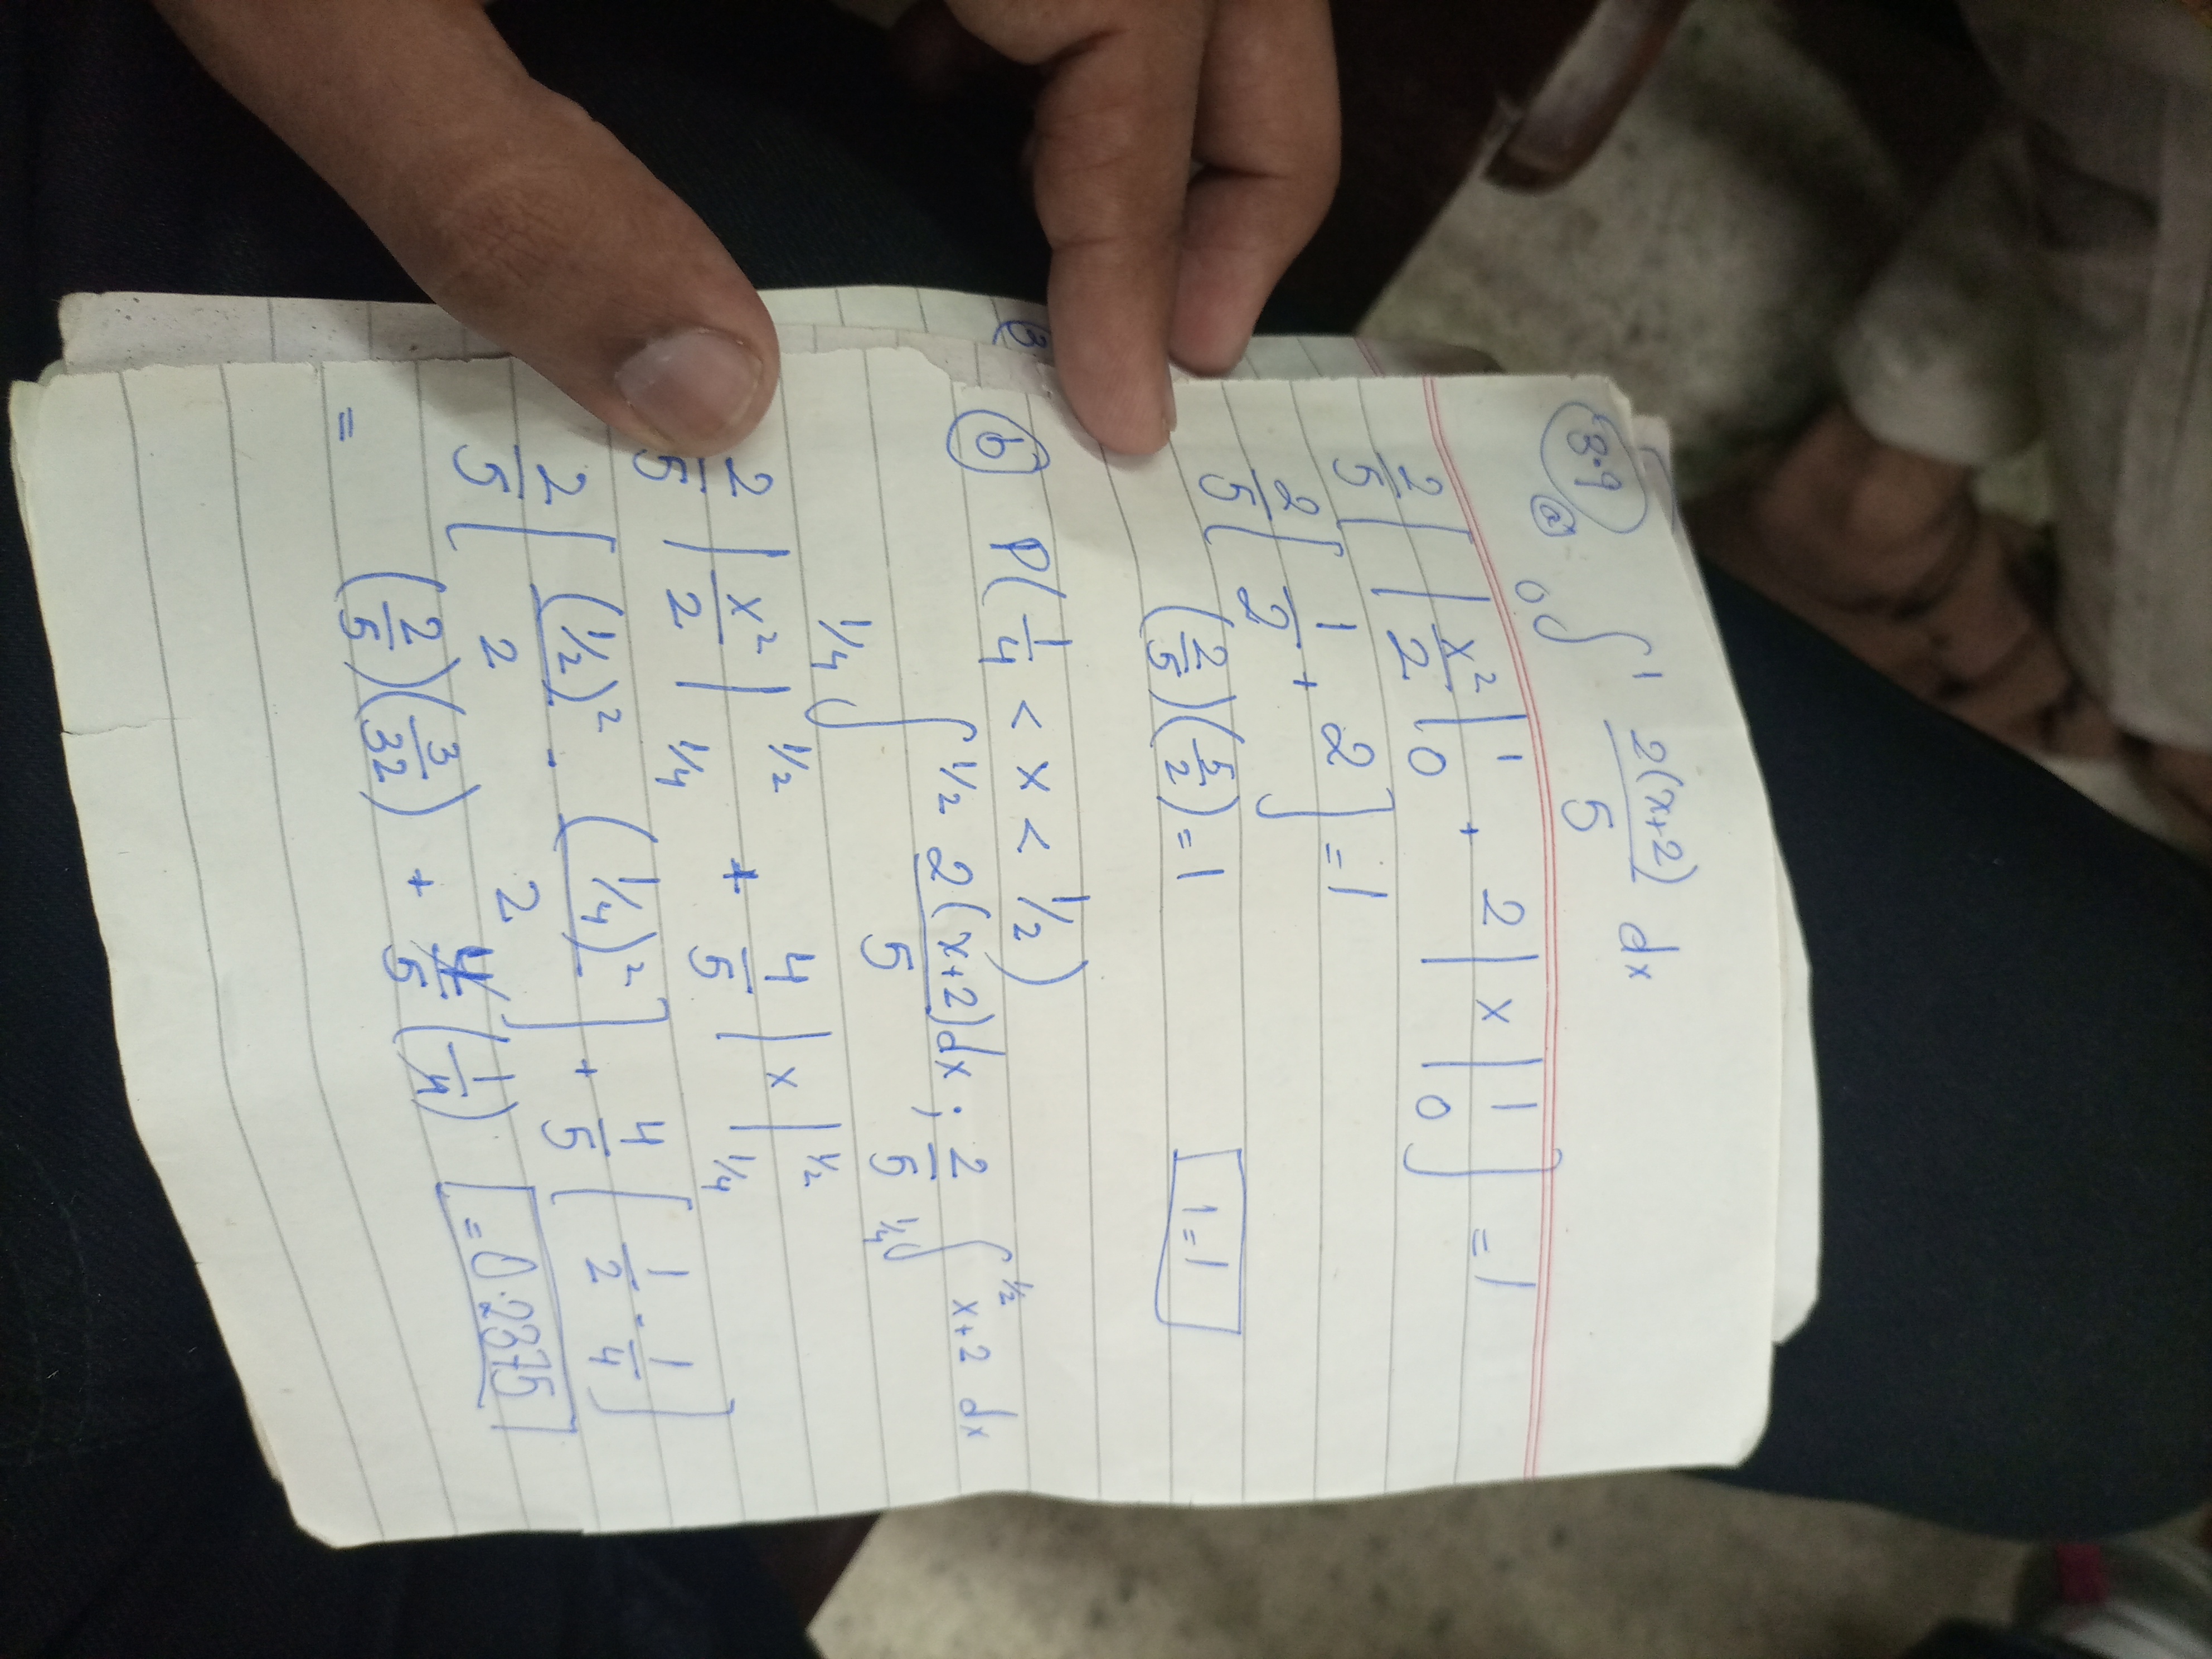 3.9
a 0∫1 2(x+2)/5 dx
2/5 [ | x²/2 |1 0 + 2 | x |1 0 ] = 1
2/5 [ 1/2 + 2 ] = 1
(2/5)(5/2) = 1 1 = 1
b P(1/4 < x < 1/2)
1/4∫1/2 2(x+2)/5 dx ; 2/5 1/4∫1/2 x+2 dx
2/5 | x²/2 |1/2 1/4 + 4/5 | x |1/2 1/4
2/5 [ (1/2)²/2 - (1/4)²/2 ] + 4/5 [ 1/2 - 1/4 ]
= (2/5)(3/32) + 4/5 (1/4) = 0.2375